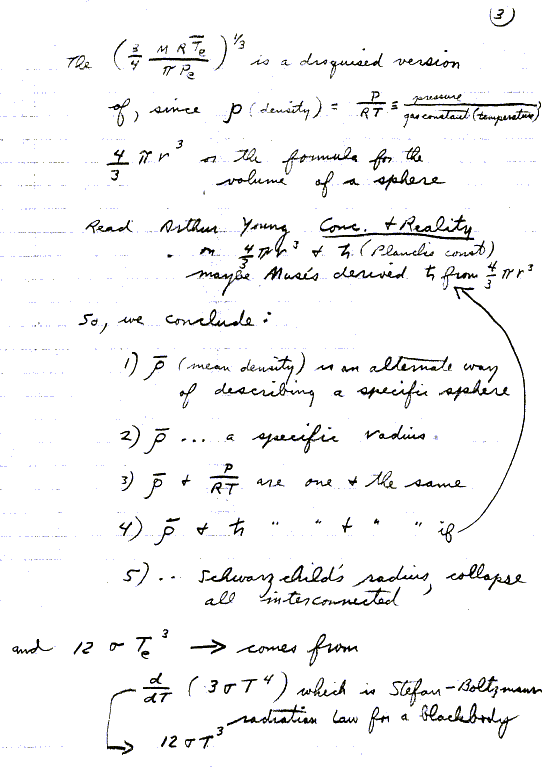 (3)
The (3/4 M R T̅e / π Pe)^1/3 is a disguised version
of, since ρ (density) = P/RT ≡ pressure/gas constant (temperature)
4/3 π r³ or the formula for the
volume of a sphere
Read Arthur Young Conc. & Reality
on 4/3 πr³ & ħ (Planck's const)
maybe Musès derived ħ from 4/3 πr³
So, we conclude:
1) ρ̅ (mean density) is an alternate way
of describing a specific sphere
2) ρ̅ ... a specific radius.
3) ρ̅ & P/RT are one & the same
4) ρ̅ & ħ " " & " " if
5) .. Schwarzchild's radius, collapse
all interconnected
and 12 σ Te³ → comes from
d/dT (3σT⁴) which is Stefan-Boltzmann
radiation Law for a blackbody
12σT³